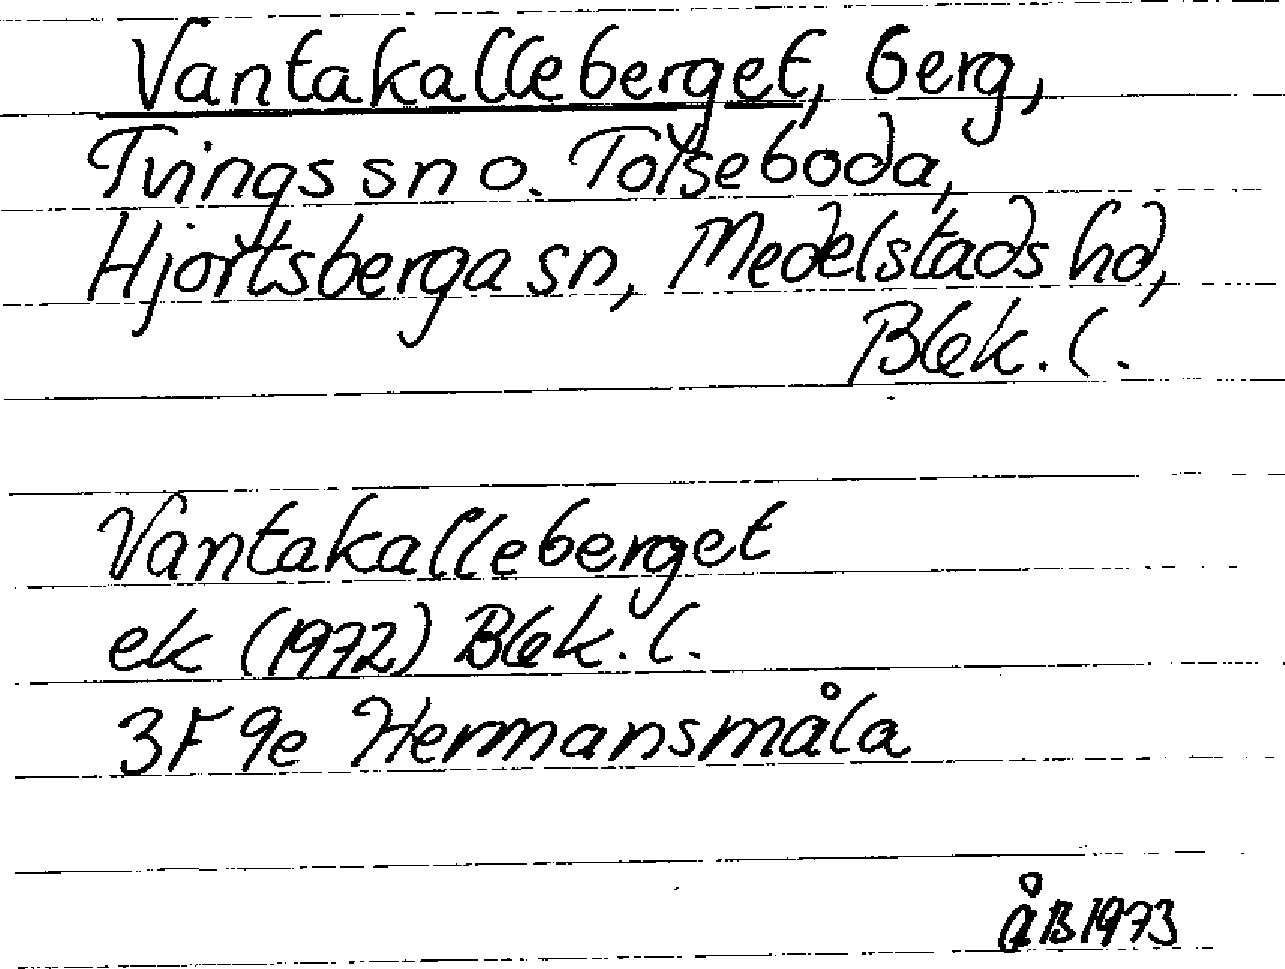 Vantakalleberget, berg,
Tvings sn o. Tolseboda,
Hjortsberga sn, Medelstads hd,
Blek. l.
Vantakalleberget
ek (1972) Blek. l.
3F 9e Hermansmåla
ÅB 1973